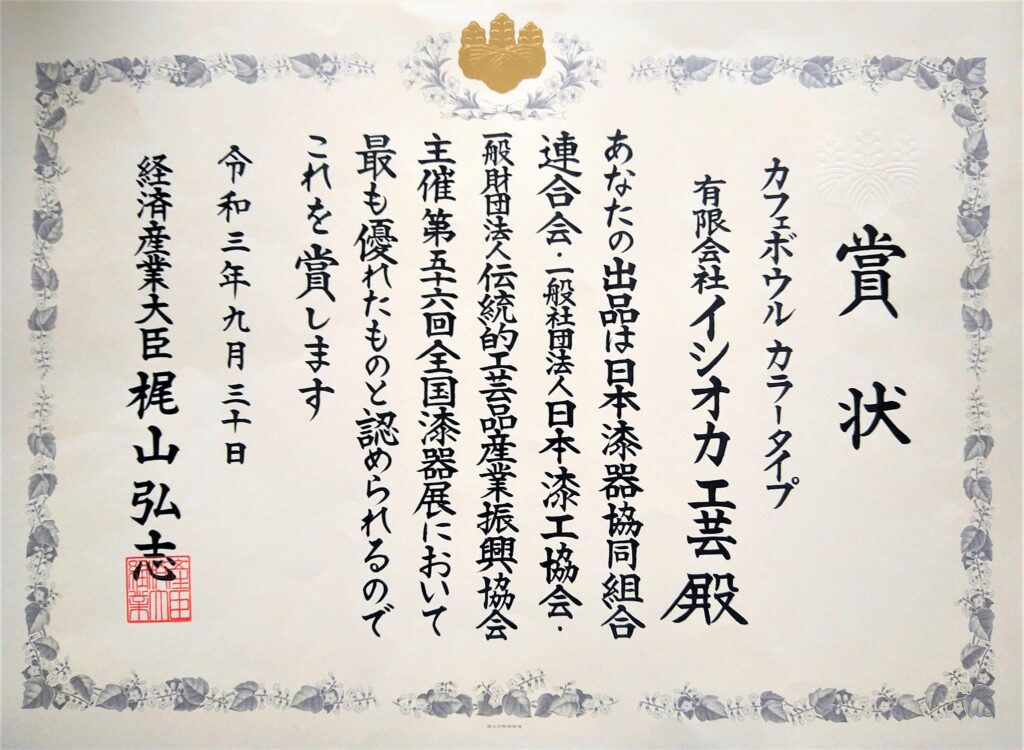 賞状
カフェボウル カラータイプ
有限会社イシオカ工芸殿
あなたの出品は日本漆器協同組合
連合会・一般社団法人日本漆工協会・
一般財団法人伝統的工芸品産業振興協会
主催第五十六回全国漆器展において
最も優れたものと認められるので
これを賞します
令和三年九月三十日
経済産業大臣梶山弘志